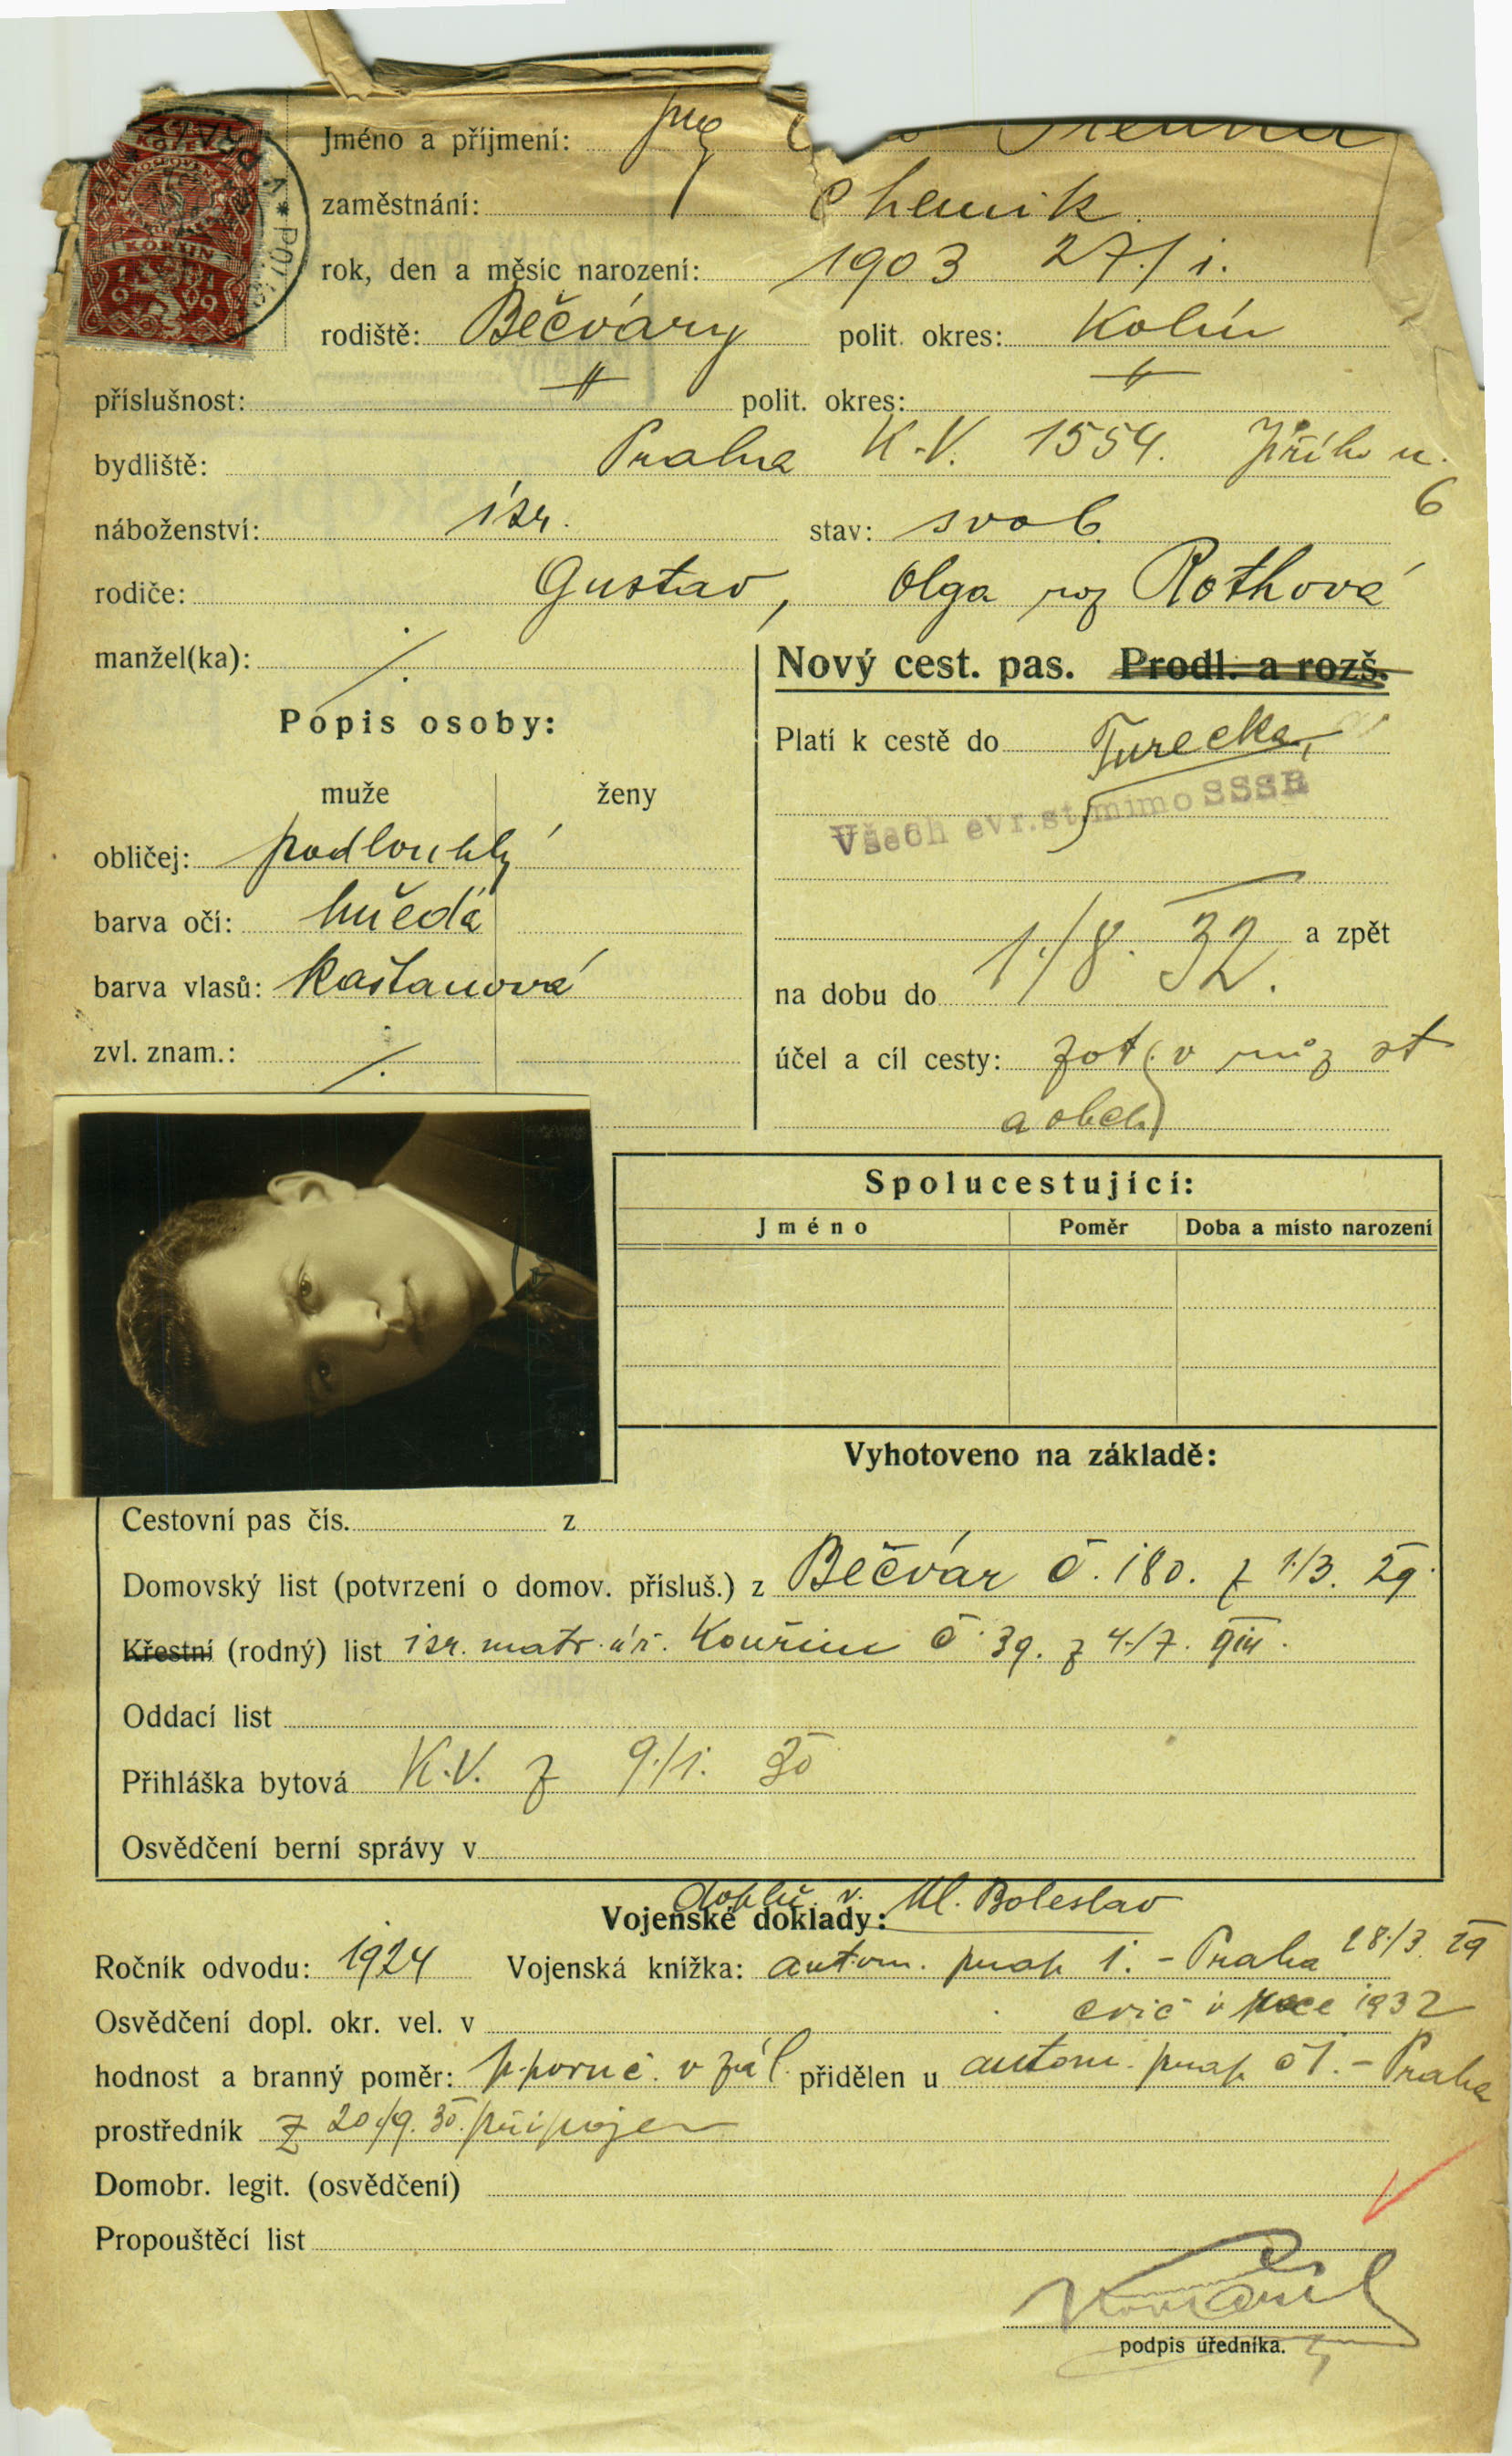 Jméno a příjmení: Ing
zaměstnání: Chemik.
rok, den a měsíc narození: 1903 27./1.
rodiště: Bečváry polit. okres: Kolín
příslušnost: " polit. okres: "
bydliště: Praha K.V. 1554. Jiřího n.
6
náboženství: isr. stav: svob.
rodiče: Gustav, Olga roz Rothová
manžel(ka): /.
Nový cest. pas. Prodl. a rozš.
Popis osoby:
Platí k cestě do Turecka,
muže ženy
Všech evr. st. mimo SSSR
obličej: podlouhlý
barva očí: hnědá
a zpět
barva vlasů: kaštanová
na dobu do 1./8. 32.
zvl. znam.: /.
účel a cíl cesty: zot. v růz st
a obch
Spolucestující:
Jméno Poměr Doba a místo narození
Vyhotoveno na základě:
Cestovní pas čís. z
Domovský list (potvrzení o domov. přísluš.) z Bečvár č. 180. z 1./3. 29.
Křestní (rodný) list isr. matr. úř. Kouřim č. 39. z 4./7.
Oddací list
Přihláška bytová K.V. z 9./1. 30
Osvědčení berní správy v
doplň. v. Ml. Boleslav
Vojenské doklady:
Ročník odvodu: 1924 Vojenská knížka: autom. prap 1. - Praha 28./3. 29
Osvědčení dopl. okr. vel. v cvič v roce 1932
hodnost a branný poměr: p.poruč. v zál. přidělen u autom. prap č 1. - Praha
prostředník z 20./9. 30. připojen
Domobr. legit. (osvědčení)
Propouštěcí list
podpis úředníka.